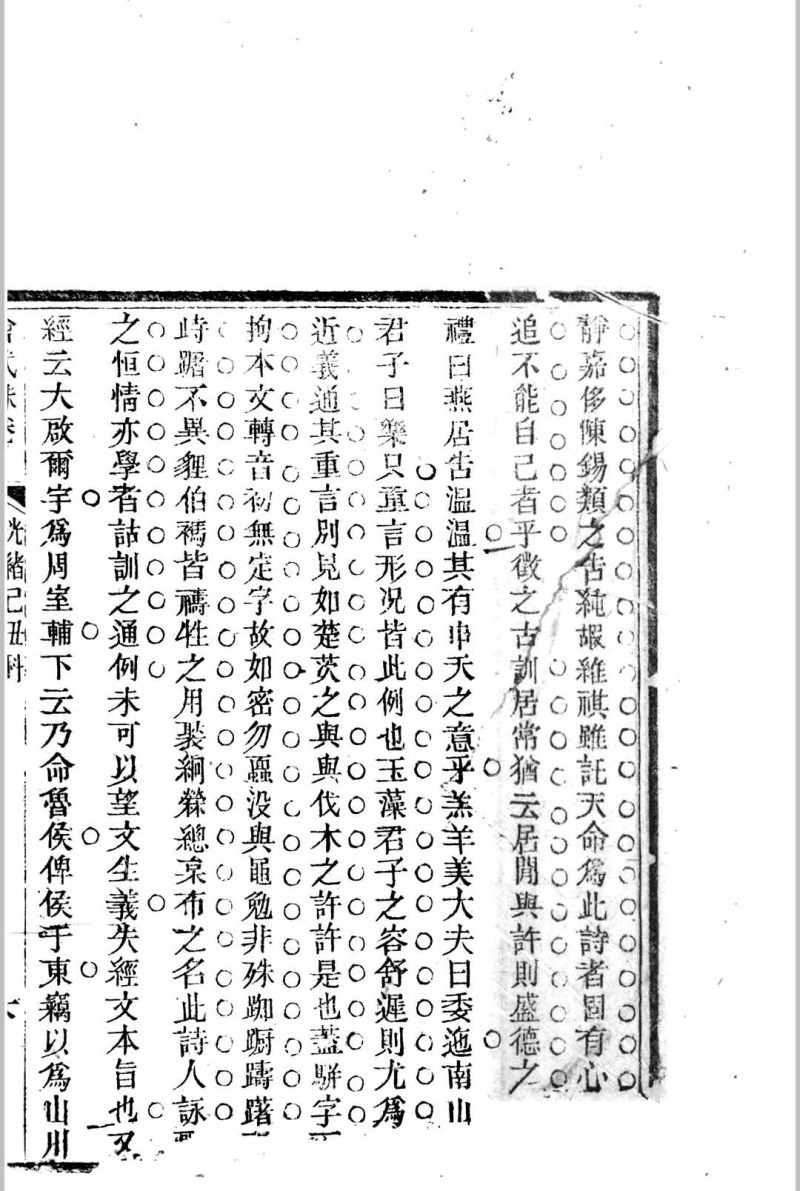 靜嘉侈陳錫類之告純嘏維祺雖託天命爲此詩者固有心
追不能自已者乎徵之古訓居常猶云居閒與許則盛德之
禮曰燕居告溫溫其有申夭之意乎羔羊美大夫曰委迤南山
君子曰樂只重言形況皆此例也玉藻君子之容舒遲則尤爲
近義通其重言別見如楚茨之與與伐木之許許是也蓋駢字
拘本文轉音初無定字故如密勿蠠没與黽勉非殊踟蹰躊躇
峙踞不異貍伯禡皆禱牲之用裝絅檾總衰布之名此詩人詠
之恒情亦學者詁訓之通例未可以望文生義失經文本旨也又
經云大啟爾宇爲周室輔下云乃命魯侯俾侯于東竊以爲山川
光緒己丑科